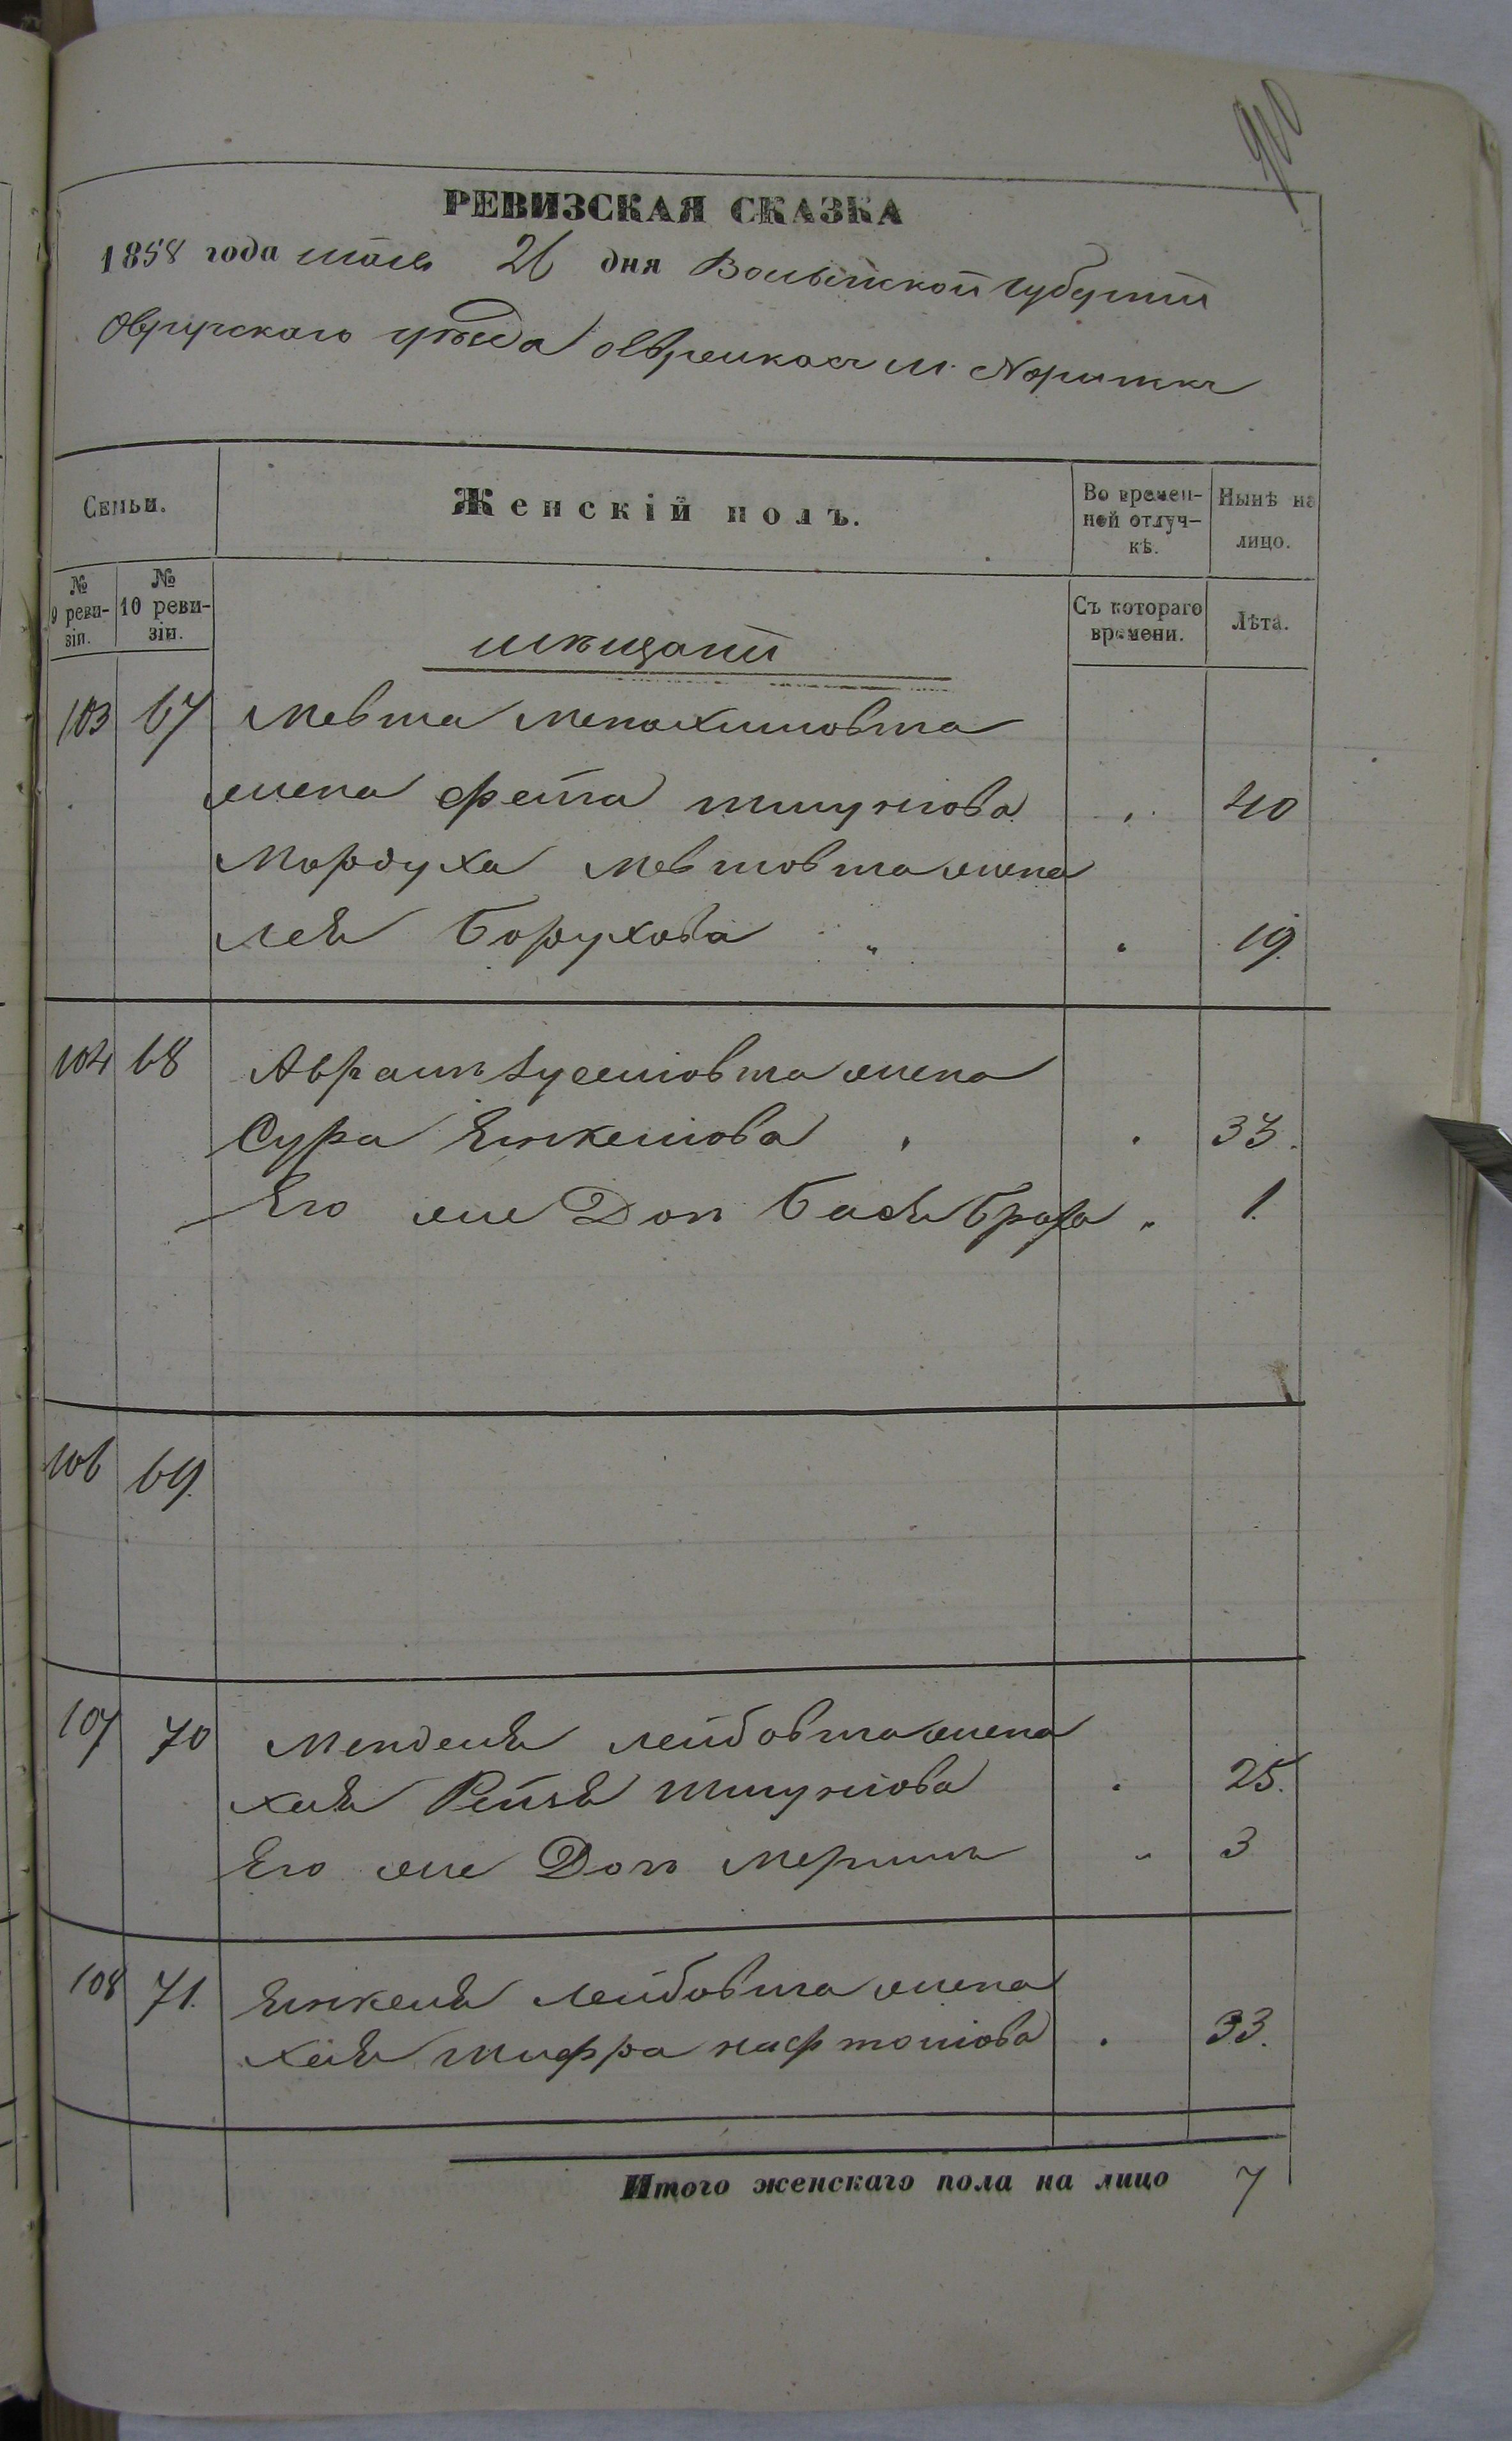 РЕВИЗСКАЯ СКАЗКА
1858 года маія 26 дня Волынской губерніи
Овручскаго уѣзда о Евреяхъ м. Норинска
Семьи.
Женскій полъ.
Во времен-
ной отлуч-
кѣ.
Нынѣ на
лицо.
№
9 реви-
зіи.
№
10 реви-
зіи.
Съ котораго
времени.
Лѣта.
мѣщани
103 67 менахимовича
жена Фейга шмулiова 40
Мордуха жена
Лея Борухова „ 19.
104 68 Аврамъ жена
Сура Янкелiова 33.
Его же Доч Бася Браха „ 1.
106 69.
107 70 Менделя Лейбовича жена
Хая Рейзя шмулiова 25.
Его же Доч „ 3
108 71. Янкеля Лейбовича жена
Хая Шифра нафтолiова 33.
Итого женскаго пола на лицо 7